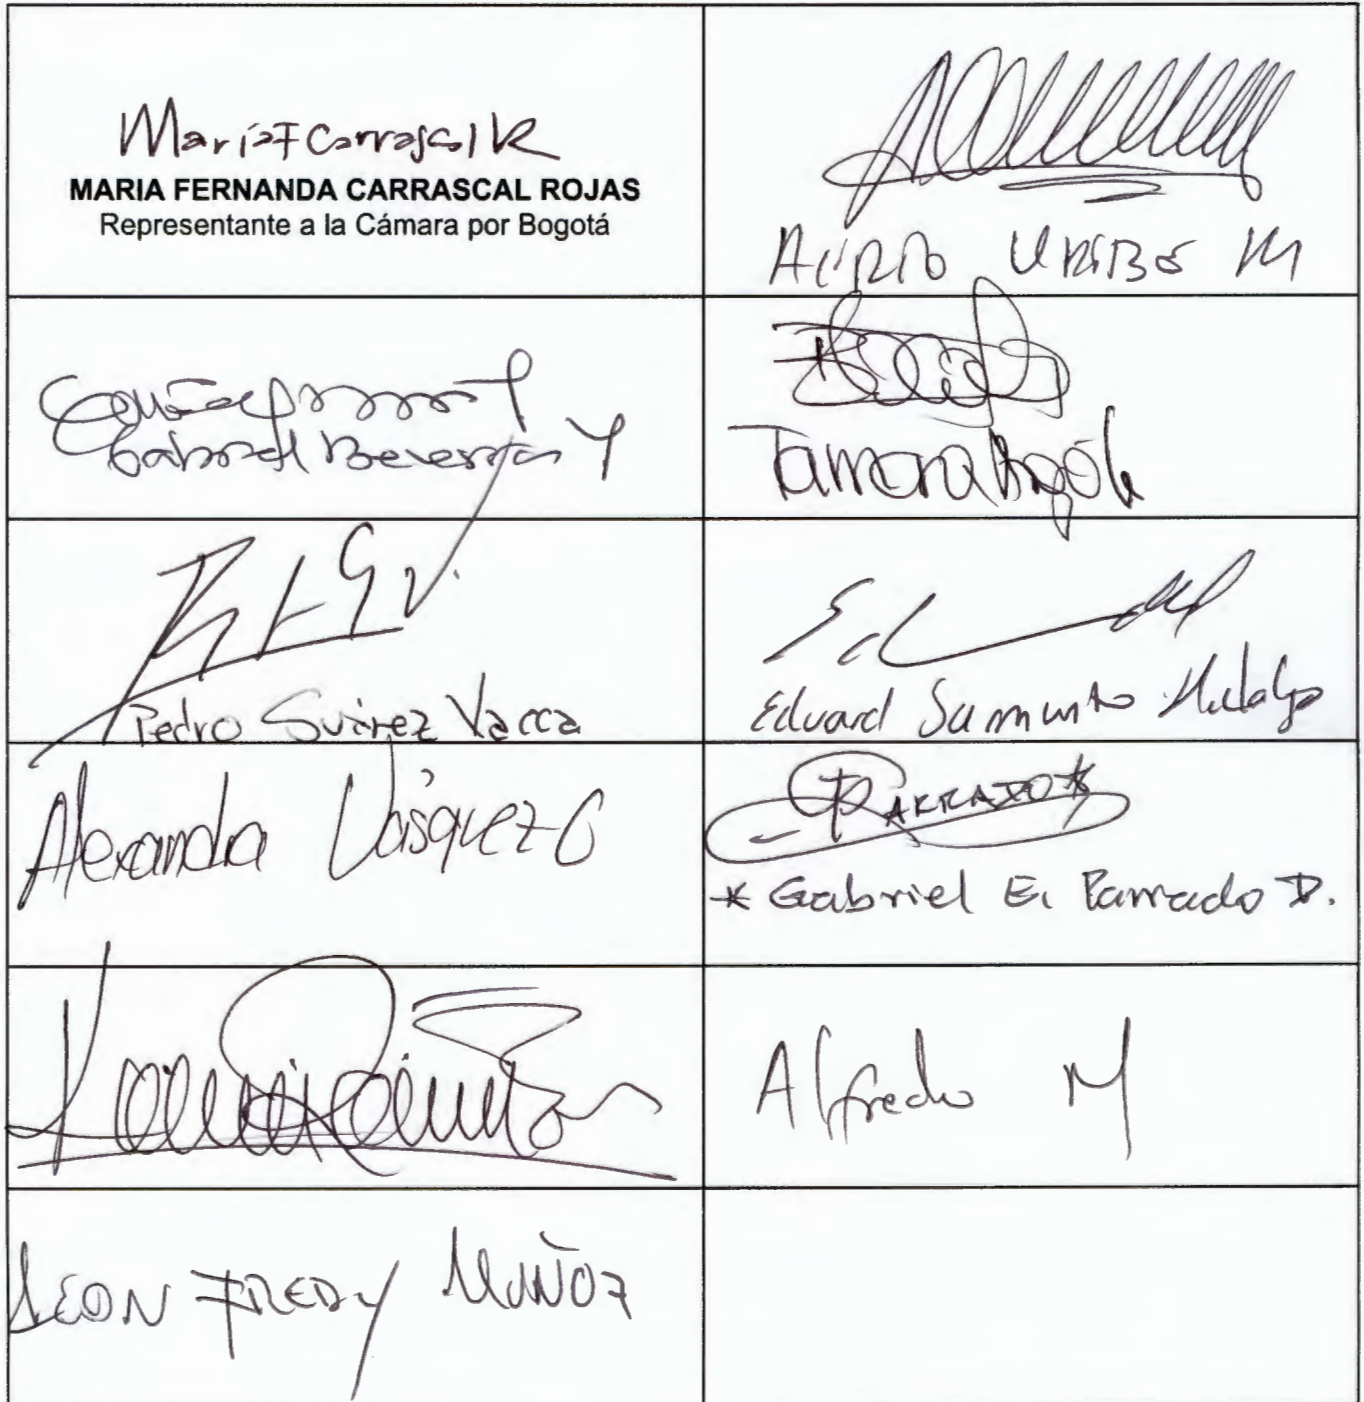 María F Carrascal R
MARIA FERNANDA CARRASCAL ROJAS
Representante a la Cámara por Bogotá
Alirio Uribe M
Gabriel Becerra Y
Tamara
Pedro Suárez Vacca
Eduard Sarmiento Hidalgo
Alexandra Vásquez
PARRADO*
* Gabriel E. Parrado D.
Alfredo M
LEON FREDY MUÑOZ